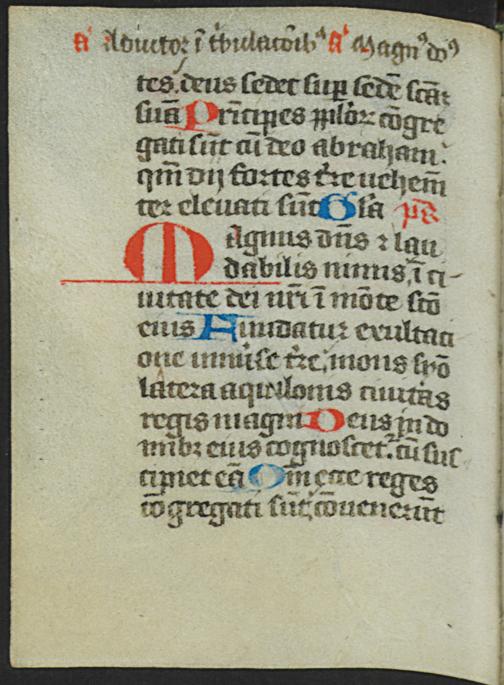 a̕ Adiutor ī tͥbulatōībꝰ a̕ Magnꝰ dōꝰ
tes. deus sedet suꝑ sedē scām
suā Prīcipes ꝓpl̓oꝝ cōgre
gati sūt cū deo abraham:
qm̄ dij fortes t̓re uehem̄
ter eleuati sūt Gl̓a p̄s
Magnus dn̄s ⁊ lau
dabilis nimis, ī ci-
uitate dei nr̄i ī mōte sc̄o
eius Fundatur exultati
one uniu̓se t̓re, mons syō
latera aquilonis ciuitas
regis magni Deus in do
mibꝫ eius cognoscet᷑: cū sus
cipiet eā Qm̄ ecce reges
cōgregati sūt, cōuenerūt